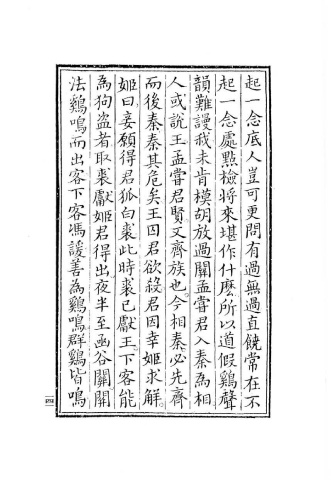 起一念底人豈可更問有過無過直饒常在不
起一念處點檢將來堪作什麽所以道假鷄聲
韻難謾我未肯模胡放過關孟甞君入秦為相
人或說王孟甞君賢又齊族也今相秦必先齊
而後秦秦其危矣王囚君欲殺君因幸姬求解
姬曰妾願得君狐白裘此時裘已獻王下客能
為狗盗者取裘獻姬君得出夜半至函谷關關
法鷄鳴而出客下客馮諼善為鷄鳴群鷄皆鳴